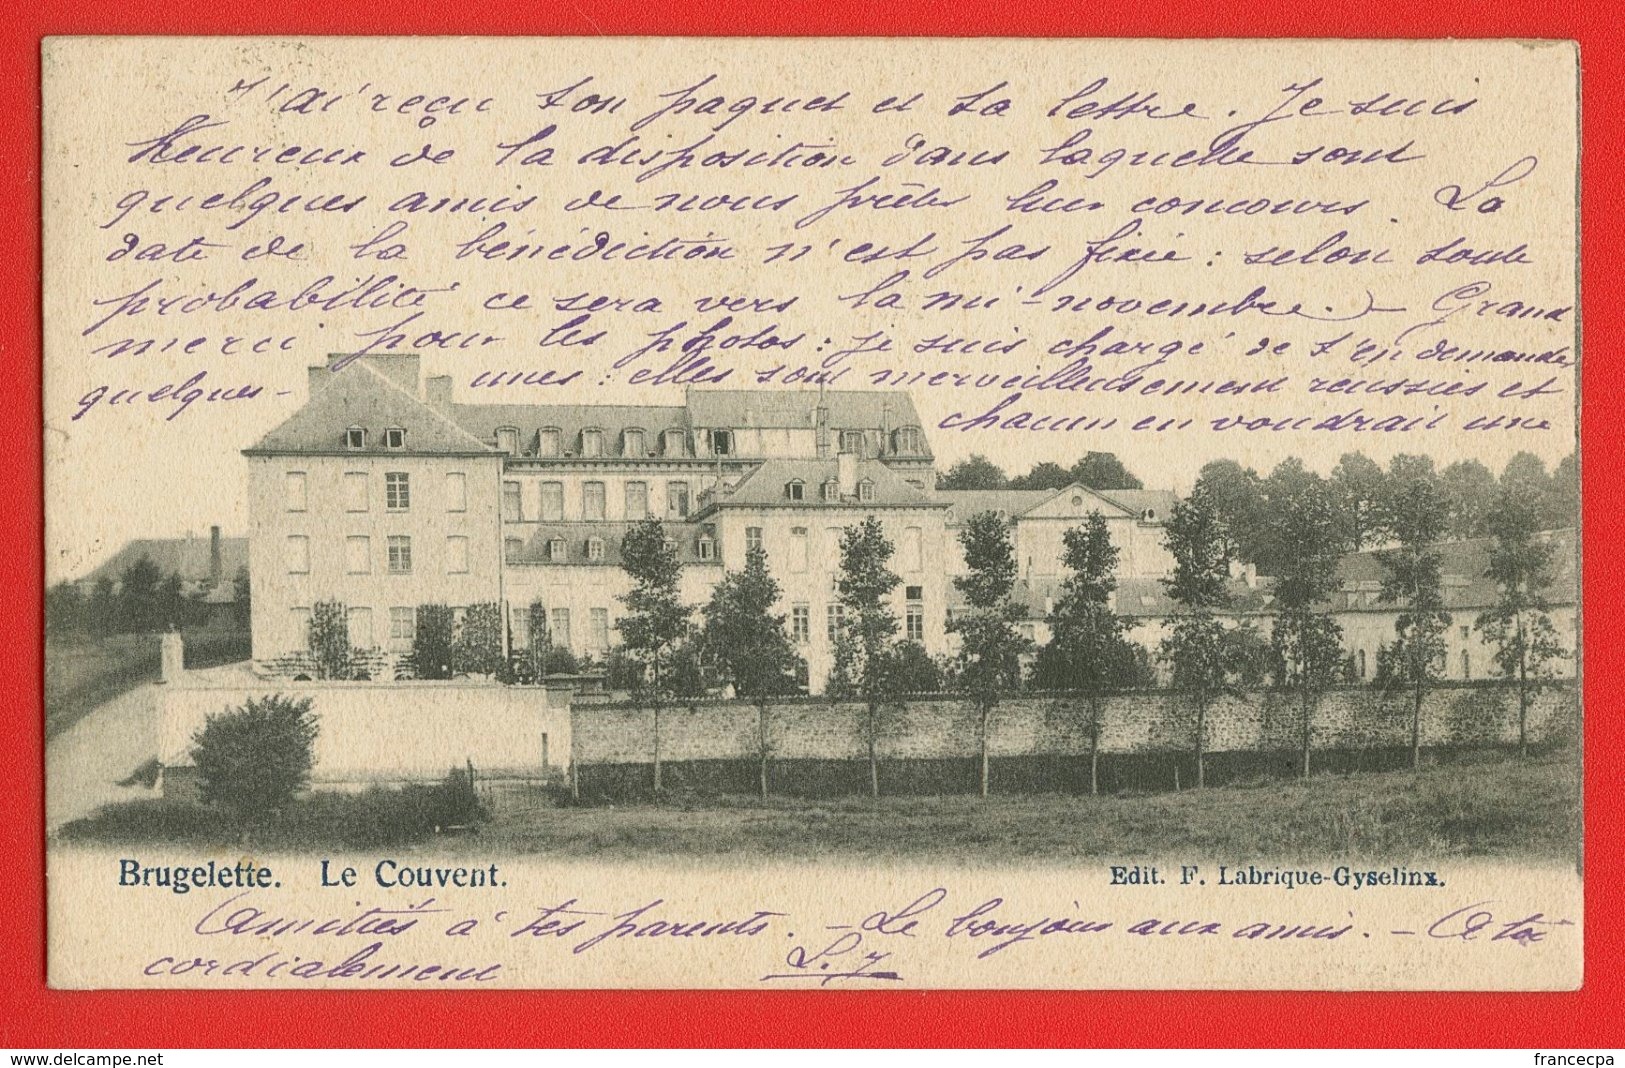 J'ai reçu ton paquet et ta lettre. Je suis
heureux de la disposition dans laquelle sont
quelques amis de nous prêter leur concours. La
date de la bénédiction n'est pas fixée : selon toute
probabilité ce sera vers la mi-novembre. – Grand
merci pour les photos : je suis chargé de t'en demander
quelques-unes : elles sont merveilleusement réussies et
chacun en voudrait une
Brugelette. Le Couvent.
Edit. F. Labrique-Gyselinx.
Amitiés à tes parents. – Le bonjour aux amis. – A toi
cordialement
L. J
www.delcampe.net
francecpa